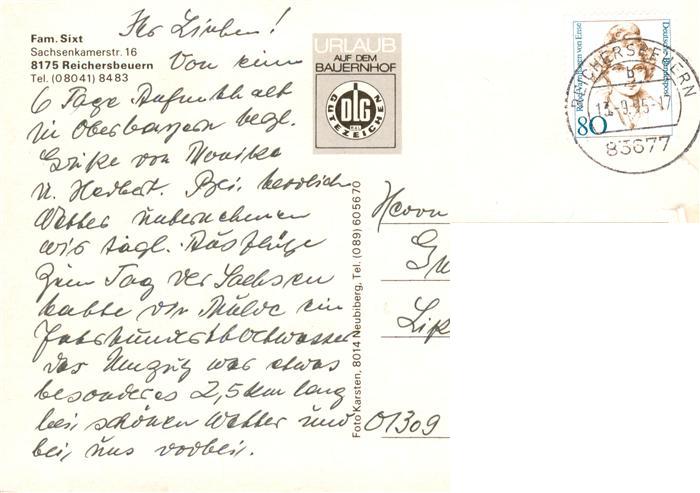 Ihr Lieben!
Fam. Sixt
Sachsenkamerstr. 16
8175 Reichersbeuern
Tel. (08041) 8483
Von einem
6 Tage Aufenthalt
in Oberbayern hzgl.
Grüße von Monika
u. Herbert. Bei herrlichem
Wetter unternehmen
wir tägl. Ausflüge
Zum Tag der Sachsen
hatte die Mulde ein
Jahrhunderthochwasser
der Umzug war etwas
besonderes 2,5 km lang
bei schönen Wetter und
bei uns vorbei.
URLAUB
AUF DEM
BAUERNHOF
DLG
GÜTEZEICHEN
Foto Karsten, 8014 Neubiberg, Tel. (089) 605670
Rahel Varnhagen von Ense
Deutsche Bundespost
80
REICHERSBEUERN
b
83677
Herrn
01309